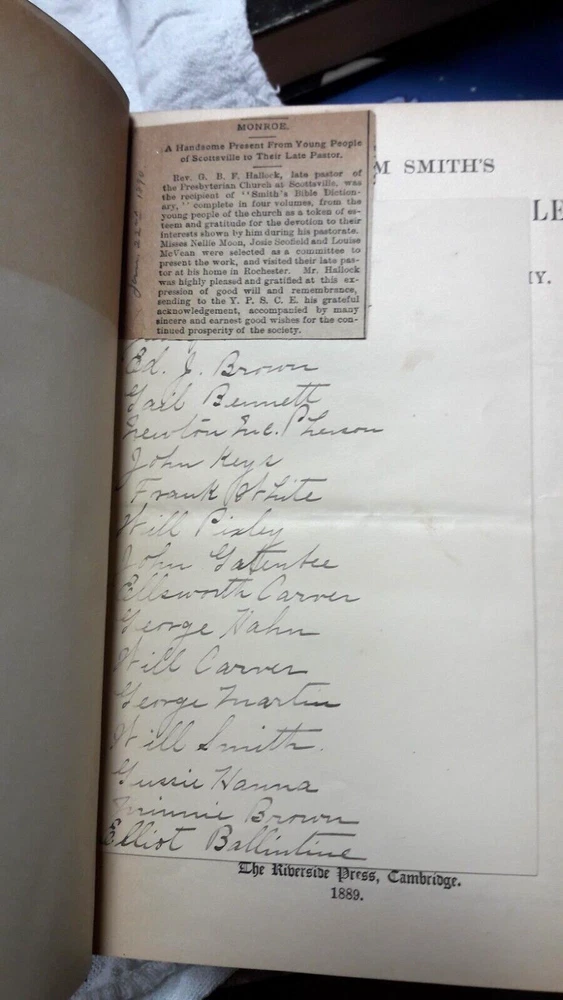 MONROE.
A Handsome Present From Young People
of Scottsville to Their Late Pastor.
Rev. G. B. F. Hallock, late pastor of
the Presbyterian Church at Scottsville, was
the recipient of "Smith's Bible Diction-
ary," complete in four volumes, from the
young people of the church as a token of es-
teem and gratitude for the devotion to their
interests shown by him during his pastorate.
Misses Nellie Moon, Josie Scofield and Louise
McVean were selected as a committee to
present the work, and visited their late pas-
tor at his home in Rochester. Mr. Hallock
was highly pleased and gratified at this ex-
pression of good will and remembrance,
sending to the Y. P. S. C. E. his grateful
acknowledgement, accompanied by many
sincere and earnest good wishes for the con-
tinued prosperity of the society.
Jan. 22nd 1890
M SMITH'S
LE
Y.
Ed. J. Brown
Gail Bennett
Newton Mc. Pherson
John Keys
Frank White
Will Pixley
John Gattentee
Ellsworth Carver
George Hahn
Will Carver
George Martin
Will Smith.
Gussie Hanna
Minnie Brown
Elliot Ballintine
The Riverside Press, Cambridge.
1889.